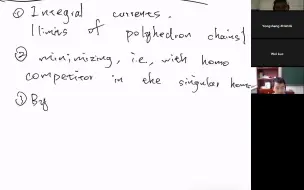 ① Integral currents.
(limits of polyhedron chains)
② minimizing, i.e., with homo
competitor in the singular homo
① By
Yongsheng Zhang
Wei Luo